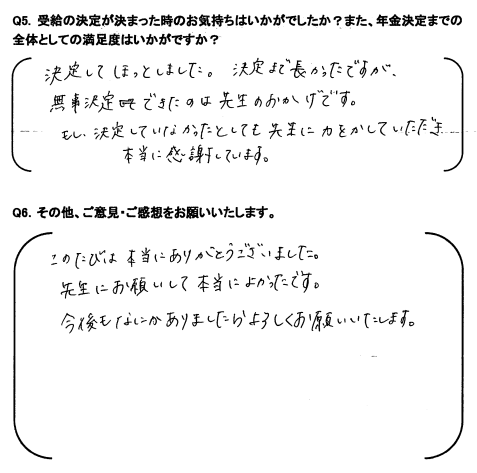 Q5. 受給の決定が決まった時のお気持ちはいかがでしたか？また、年金決定までの
全体としての満足度はいかがですか？
決定して ほっとしました。 決定まで長かったですが、
無事決定できたのは先生のおかげです。
もし、決定していなかったとしても 先生に力をかしていただき
本当に感謝しています。
Q6. その他、ご意見・ご感想をお願いいたします。
このたびは 本当にありがとうございました。
先生にお願いして 本当によかったです。
今後もなにかありましたらよろしくお願いいたします。